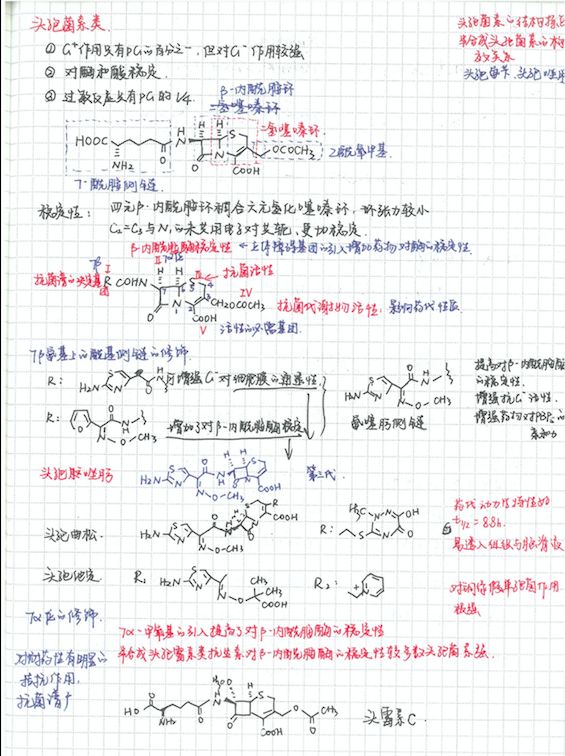 头孢菌素类
① G⁺作用只有PG的百分之一,但对G⁻作用较强
② 对酶和酸稳定.
③ 过敏反应只有PG的1/4.
头孢菌素的结构
半合成头孢菌素的构
效关系
β-内酰胺环
二氢噻嗪环
二氢噻嗪环.
HOOC
NH₂
H
N
H
H
S
O
N
OCOCH₃
COOH
乙酰氧甲基
7-酰胺侧链
稳定性:
四元β-内酰胺环稠合六元氢化噻嗪环,环张力较小
C₂=C₃与N₁的未共用电子对共轭,更加稳定.
β-内酰胺酶稳定性
抗菌谱的决定基团
I
II
III
抗菌活性
R CONH
H
H
S
7
6
5
4
3
2
1
O
N
CH₂OCOCH₃
IV
COOH
V
活性的必需基团.
抗菌代谢物活性,影响药代性质
7β氨基上的酰基侧链的修饰
R:
H₂N
S
N
O
N
H
增强G⁻对细胞膜的通透性
R:
O
N
O-CH₃
增加了对β-内酰胺酶稳定
H₂N
S
N
O
N-H
N
O
CH₃
氨噻肟侧链
提高对β-内酰胺酶
的稳定性.
增强抗G⁻活性.
增强药物对PBPs的
亲和力
头孢唑肟
H₂N
S
N
O
H
N
N
O-CH₃
COOH
第三代.
头孢曲松.
H₂N
S
N
O
N
O-CH₃
R
COOH
R:
H₃C
N
N
OH
S
N
O
药代动力学特性好
t₁/₂=8.8h.
易透入组织与脑脊液
头孢他啶
R₁
H₂N
S
N
N
O
CH₃
CH₃
COOH
R₂:
N
对铜绿假单孢菌作用
极强
7α位的修饰.
7α-甲氧基的引入提高了对β-内酰胺酶的稳定性
半合成头孢霉素类抗生素对β-内酰胺酶的稳定性较多数头孢菌素强.
对耐药性有明显的
拮抗作用.
抗菌谱广
HO
O
NH₂
O
H
N
H₃C
O
H
S
N
O
COOH
O
CH₃
头霉素C.